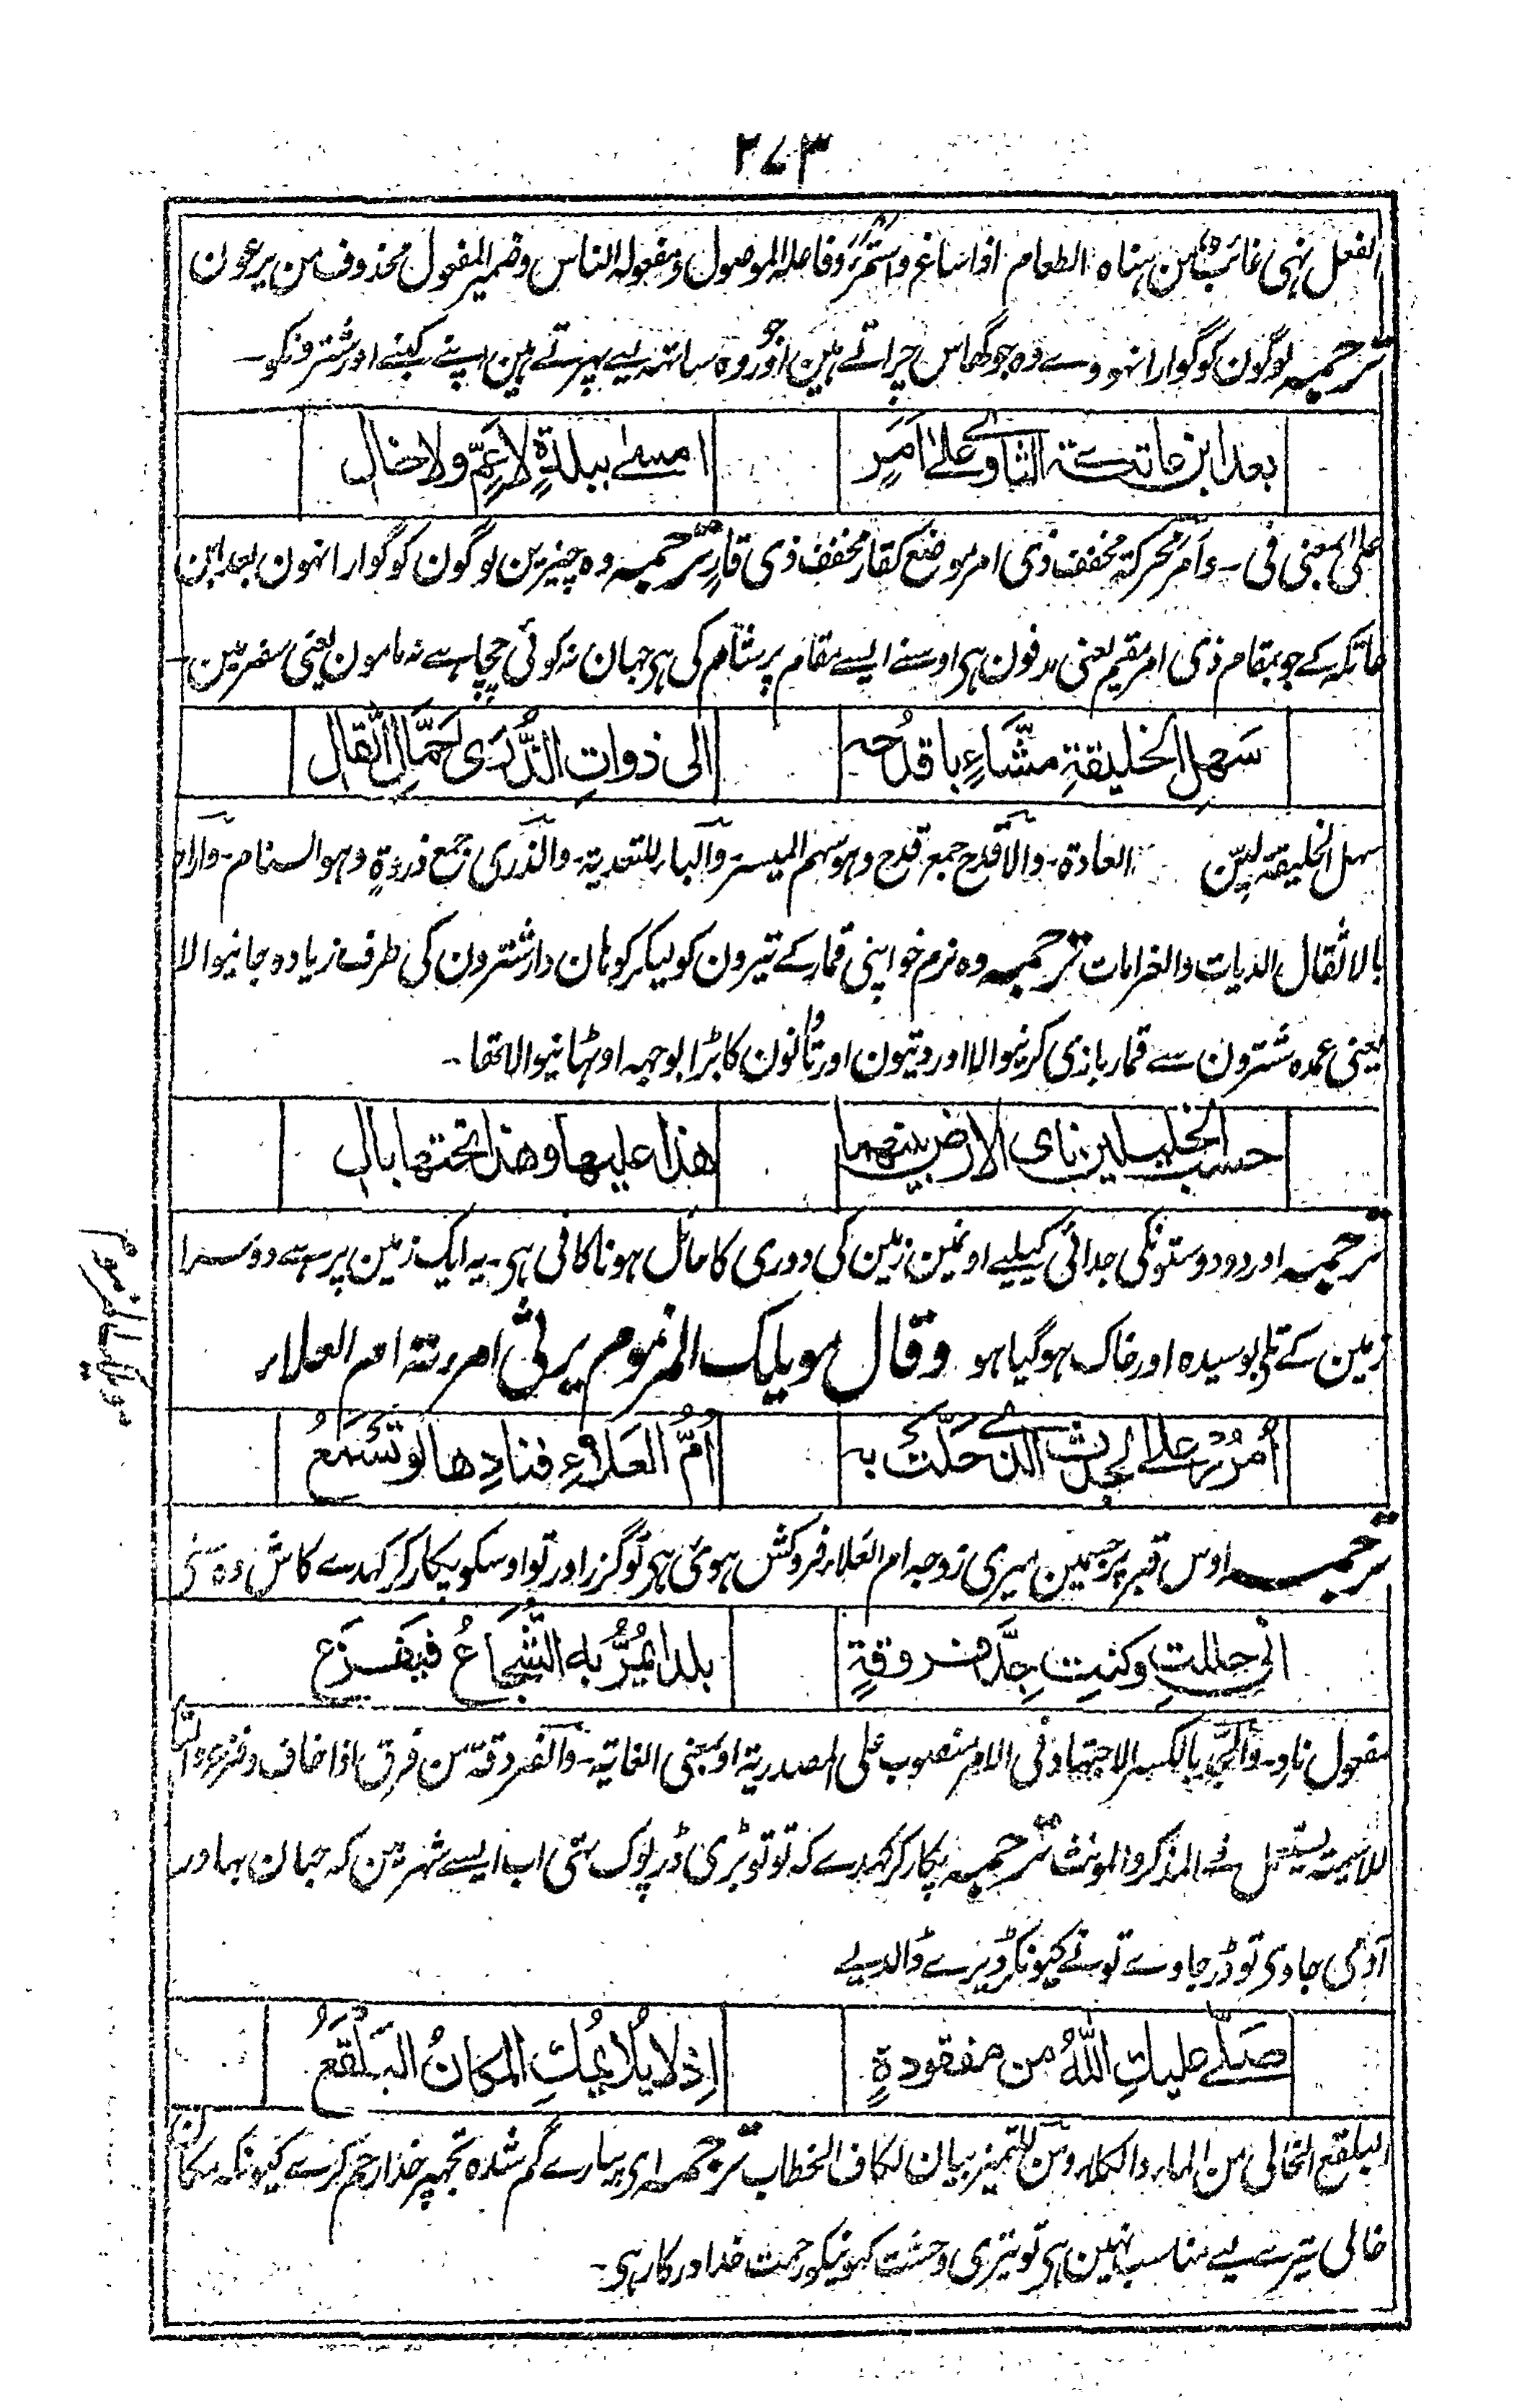 ۲۷۳
الفعل نہی غائب من ہناہ الطعام اذا ساغ واستمر وفاعلہ الموصول ومفعولہ الناس وضمیر المفعول محذوف من یرعون
ترجمہ لوگون کو گوارا نہووے وہ جو گھاس چراتے ہین اور وہ جو ساتھ لیے پہرتے ہین اپنے کنبے اور شترونکو۔
بعد ابن عاتكة الثاوي على أمَرٍ
امسى ببلدةٍ لا عَمٍّ ولا خالِ
علی بمعنی فی۔ وأمر محرکۃ مخفف ذی امر موضع کقار مخفف ذی قارٍ ترجمہ وہ چیزین لوگون کو گوارا نہون بعد ابن
عاتکہ کے جو بمقام ذی امر مقیم یعنی مدفون ہی اوسنے ایسے مقام پر شام کی ہی جہان نہ کوئی چچا ہے نہ مامون یعنی سفر مین۔
سَهلِ الخليقةِ مشَّاءٍ باقدُحه
الى ذواتِ الذُّرَى حَمَّالِ اثقالِ
سہل الخلیقۃ لیّن العادۃ۔ والاقدح جمع قدح وہو سہم المیسر۔ والباء للتعدیۃ۔ والذری جمع ذروۃٍ وہو السنام۔ واراد
بالاثقال الدیات والغرامات ترجمہ وہ نرم خو اپنی قمار کے تیرون کو لیکر کوہان دار شترون کی طرف زیادہ جانیوالا
یعنی عمدہ شترون سے قمار بازی کرنیوالا اور دیتون اور تاوانون کا بڑا بوجہہ اوٹہانیوالا تھا۔
حسب الخليلين ناى الارض بينهما
هذا عليها وهذا تحتها بالِ
ترجمہ اور دو دوستونکی جدائی کیلیے اونمین زمین کی دوری کا حائل ہونا کافی ہی۔ یہ ایک زمین پر ہے دوسرا
زمین کے تلی بوسیدہ اور خاک ہوگیا ہو وقال مویلک المزموم یرثی امرءتہ ام العلاء
مویلک المزموم
أُمرُرْ على الجدث الذي حَلّتْ به
أُمُّ العَلاءِ فنادِها لو تَسمَعُ
ترجمہ اوس قبر پر جسمین میری زوجہ ام العلاء فروکش ہوئی ہی تو گزر اور تو اوسکو پکار کر کہدے کاش وہ سنی
انّٰى حللتِ وكنتِ جِدَّ فروقةٍ
بلدا يَمُرُّ به الشُّجاعُ فيَفزَع
مفعول نادِ۔ والجد بالکسر الاجتہاد فی الامر منصوب علی المصدریۃ او بمعنی الغایۃ۔ والفروقۃ من فرق اذا خاف وفزع والتاء
للاسمیۃ یستعمل فی المذکر والمونث ترجمہ پکار کر کہدے کہ تو تو بڑی ڈرپوک تہی اب ایسے شہر مین کہ جہان بہادر
آدمی جاوی تو ڈر جاوے تونے کیونکر ڈیرے ڈالدیے
صَلّى عليكِ اللّٰهُ من مفقودةٍ
اِذ لا يُلائمُكِ المكانُ البَلقَعُ
البلقع الخالی من الماء والکلاء ومن للتمییز بیان لکاف الخطاب ترجمہ ای پیارے گم شدہ تجہپر خدا رحم کرے کیونکہ مکان
خالی تیرے لیے مناسب نہین ہی تو تیری وحشت کہونیکو رحمت خدا درکار ہی۔